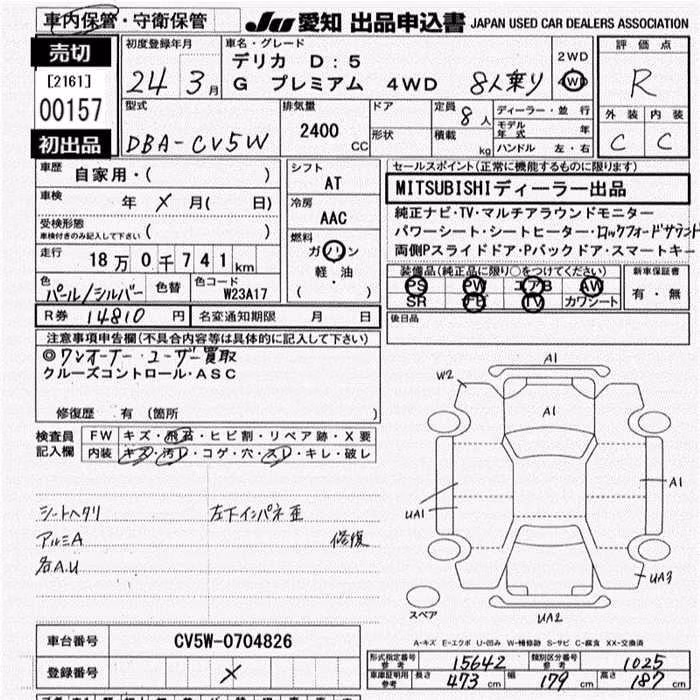 車内保管・守衛保管
JU 愛知 出品申込書 JAPAN USED CAR DEALERS ASSOCIATION
売切
[2161]
00157
初出品
初度登録年月
24 3月
車名・グレード
デリカ D:5
G プレミアム 4WD 8人乗り
2WD
4WD
評価点
R
外装 内装
C C
型式
DBA-CV5W
排気量
2400 CC
ドア
形状
定員 8人
積載 kg
ディーラー・並行
モデル年式 年
ハンドル 左・右
車歴 自家用・( )
車検 年 × 月( 日)
受検形態
車検付きのみ記入して下さい ( )
走行 18万0千741km
色 パール/シルバー 色替 色コード W23A17
シフト
AT
冷房
AAC
燃料
ガソリン
軽・油
( )
セールスポイント(正常に機能するものに限ります)
MITSUBISHIディーラー出品
純正ナビ・TV・マルチアラウンドモニター
パワーシート・シートヒーター・ロックフォードサウンド
両側Pスライドドア・Pバックドア・スマートキー
装備品(純正品に限り○をつけてください)
PS PW エアB AW
SR TV カワシート
新車保証書
有・無
R券 14810 円 名変通知期限 月 日
後日品
注意事項申告欄(不具合内容等は具体的に記入して下さい)
◎ワンオーナー・ユーザー買取
クルーズコントロール・ASC
修復歴 有 (箇所 )
検査員記入欄
FW キズ・飛石・ヒビ割・リペア跡・X要
内装 キズ・汚レ・コゲ・穴・スレ・キレ・破レ
シートヘタリ 左下インパネ歪
アルミA 修復
各A.U
A1
W2
A1
A1
UA1
UA3
UA2
スペア
A-キズ E-エクボ U-凹み W-補修跡 S-サビ C-腐食 XX-交換済
車台番号 CV5W-0704826
登録番号 ×
形式指定番号 参考 15642 類別区分番号 参考 1025
車庫証明用 参考 長さ 473cm 幅 179cm 高さ 187cm